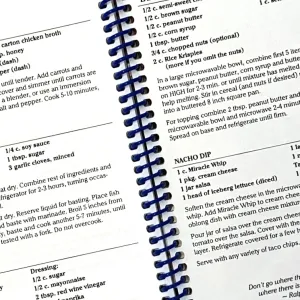 carton chicken broth
p. honey
(dash)
pper (dash)
until tender. Add carrots and
cover and simmer until carrots are
a blender, or use an immersion
alt and pepper. Cook 5-10 minutes,
1/4 c. soy sauce
1 tbsp. sugar
3 garlic cloves, minced
at dry. Combine rest of ingredients and
efrigerator for 2-3 hours, turning occas-
at dry. Reserve liquid for basting. Place fish
d baste with marinade. Broil 5 inches from
y, baste and cook another 5-7 minutes, until
tested with a fork. Do not overcook.
Dressing:
1/2 c. sugar
1/2 c. mayonnaise
1 tbsp. red wine vinegar
1/2 c. semi-sweet
1/2 c. brown sugar
1/2 c. peanut butter
1/2 c. corn syrup
1 tbsp. butter
3/4 c. chopped nuts (optional)
2 c. Rice Krispies
(more if you omit the nuts)
In a large microwavable bowl, combine first 5
brown sugar, peanut butter, corn syrup and butter
on HIGH for 2-3 min. or until mixture has melted
help melting. Stir in cereal (and nuts if desired)
into a buttered 8 inch square pan.
For topping combine 2 tbsp. peanut butter and
microwavable bowl. Microwave on MED 2-4 m
Spread on base and refrigerate until firm.
NACHO DIP
1 c. Miracle Whip
1 pkg. cream cheese
1 jar salsa
1 head of iceberg lettuce (diced)
Soften the cream cheese in the microwave
whip. Add Miracle Whip to cream cheese
oblong dish with cream cheese mixture
Pour jar of salsa over the cream cheese
tomato over the salsa. Cover with the
layer. Refrigerate covered for a few h
Serve with any variety of taco chips
Don't go where th
where there
— Ral